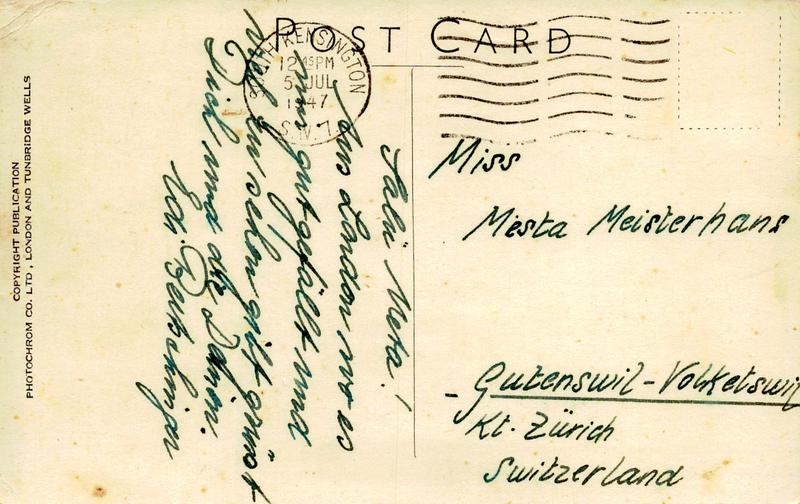 POST CARD
SOUTH KENSINGTON
12 45 PM
5 JUL
1947
S.W.7
Miss
Mesta Meisterhans
Gutenswil-Volketswil
Kt. Zürich
Switzerland
Salü Meta!
Aus London wo es
mir gut gefällt und
viel zu sehen gibt grüsst
Dich und die Deinen.
COPYRIGHT PUBLICATION
PHOTOCHROM CO. LTD., LONDON AND TUNBRIDGE WELLS